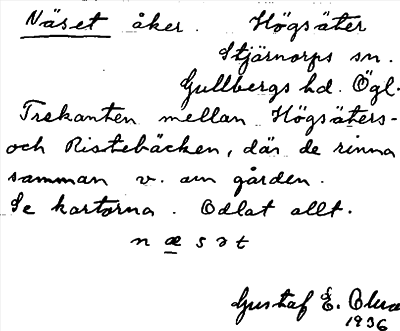 Näset åker. Högsäter
Stjärnorps sn.
Gullbergs hd. Ögl.
Trekanten mellan Högsäters-
och Ristebäcken, där de rinna
samman v. om gården.
Se kartorna. Odlat allt.
n æ s ə t
Gustaf E.
1936